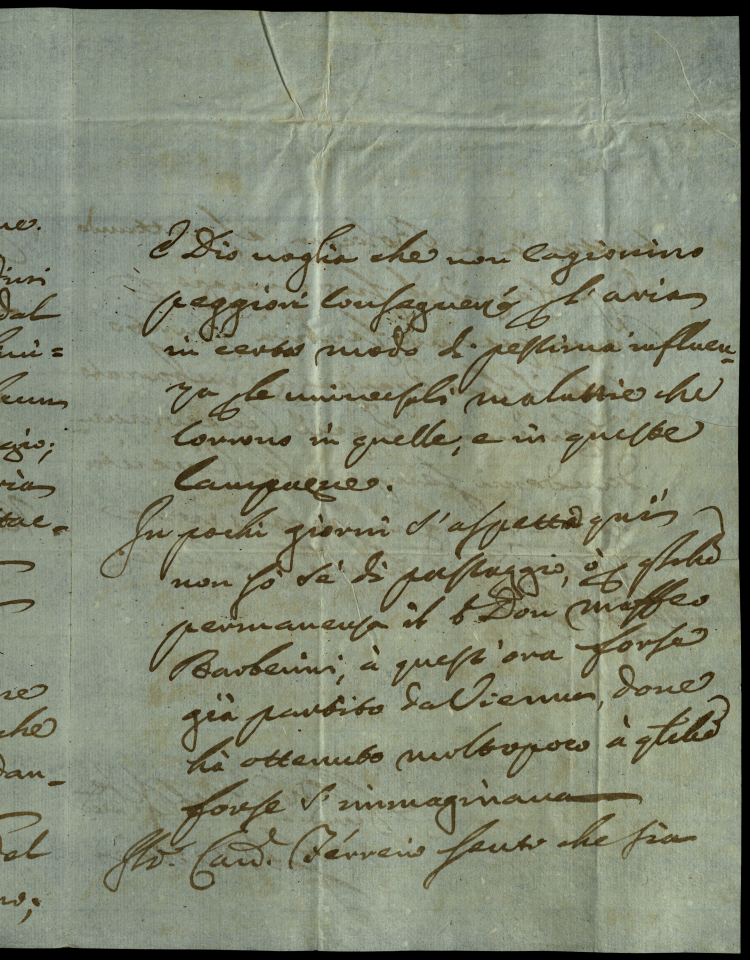 ne.
dal
che
dan-
del
no;
e Dio voglia che non cagionino
peggiori conseguenze l'aria
in certo modo di pestima influen-
za, le universali malattie che
corrono in quelle, e in queste
Campagne.
In pochi giorni s'aspetta quì
non sò sè di passaggio, ò
permanenza il Don Maffeo
Barberini, à quest'ora forse
già partito da Vienna, dove
hà ottenuto molto poco à
forse s'immaginava
Card. Ferrerio sento che sia